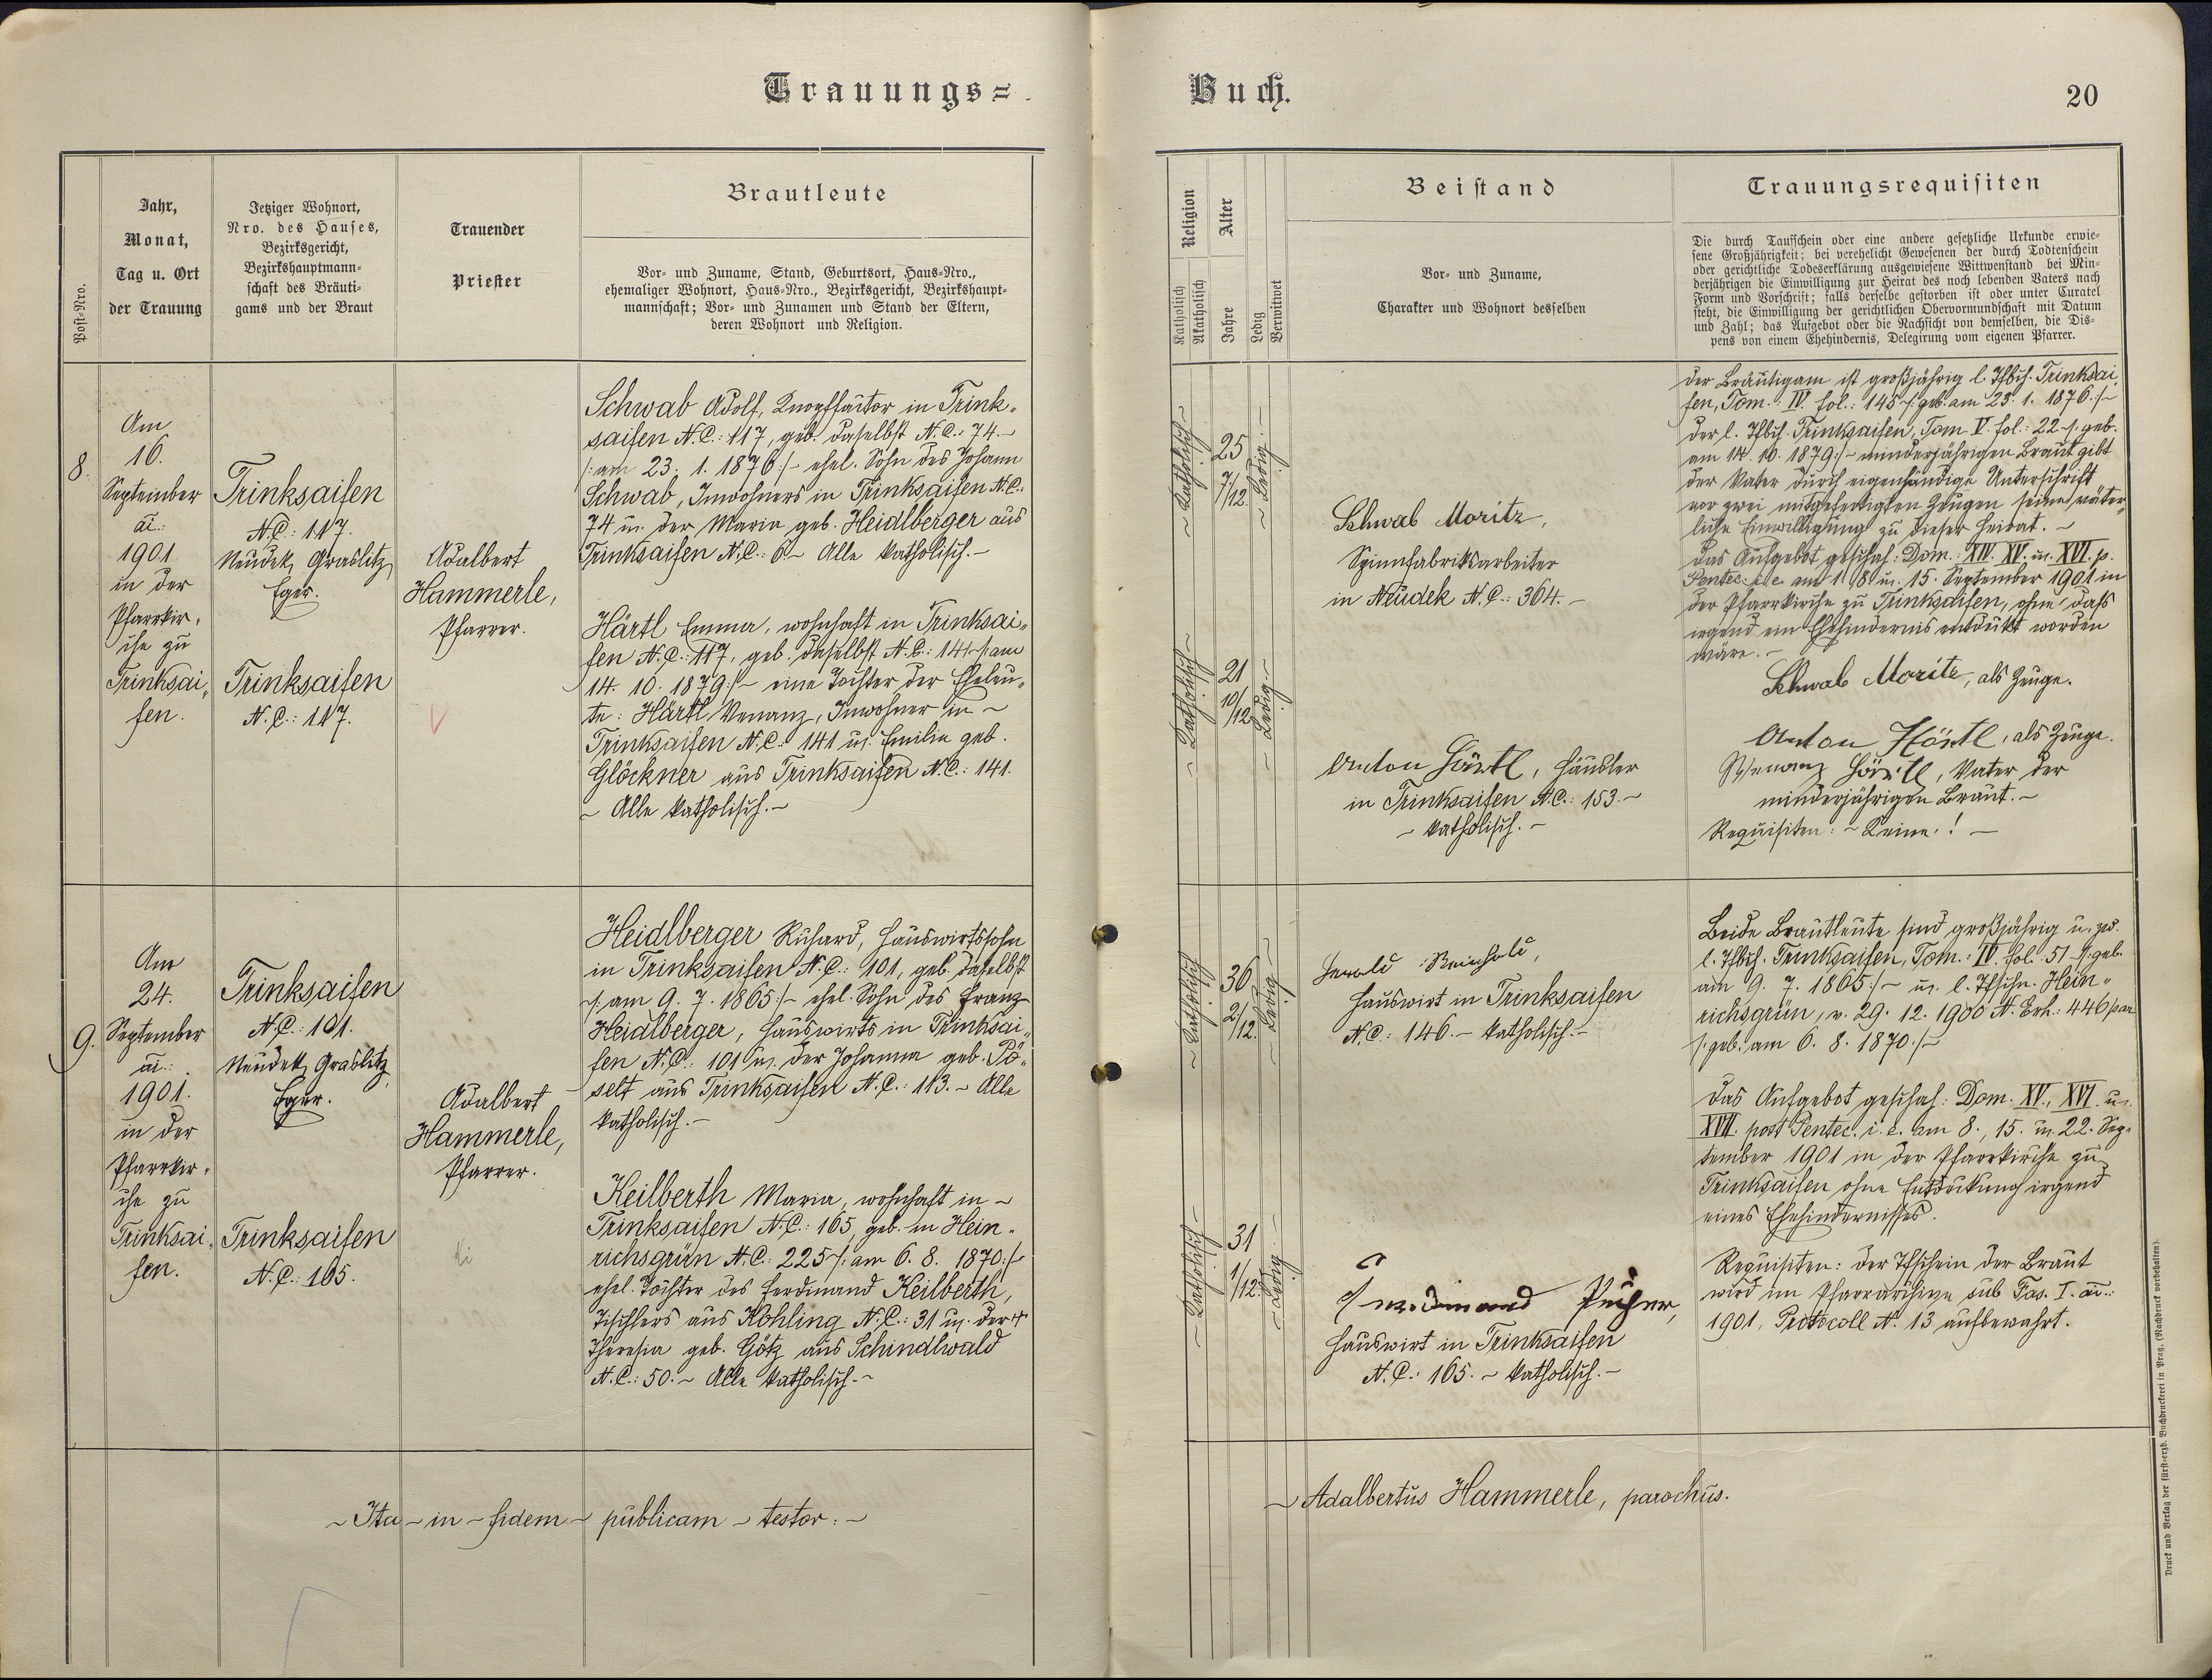 Trauungs=
Buch.
20
Post-Nro.
Jahr,
Monat,
Tag u. Ort
der Trauung
Jetziger Wohnort,
Nro. des Hauses,
Bezirksgericht,
Bezirkshauptmann-
schaft des Bräuti-
gams und der Braut
Trauender
Priester
Brautleute
Vor- und Zuname, Stand, Geburtsort, Haus-Nro.,
ehemaliger Wohnort, Haus-Nro., Bezirksgericht, Bezirkshaupt-
mannschaft; Vor- und Zunamen und Stand der Eltern,
deren Wohnort und Religion.
Religion
Katholisch
Akatholisch
Alter
Jahre
Ledig
Verwitwet
Beistand
Vor- und Zuname,
Charakter und Wohnort desselben
Trauungsrequisiten
Die durch Taufschein oder eine andere gesetzliche Urkunde erwie-
sene Großjährigkeit; bei verehelicht Gewesenen der durch Todtenschein
oder gerichtliche Todeserklärung ausgewiesene Wittwenstand bei Min-
derjährigen die Einwilligung zur Heirat des noch lebenden Vaters nach
Form und Vorschrift; falls derselbe gestorben ist oder unter Curatel
steht, die Einwilligung der gerichtlichen Obervormundschaft mit Datum
und Zahl; das Aufgebot oder die Nachsicht von demselben, die Dis-
pens von einem Ehehindernis, Delegirung vom eigenen Pfarrer.
8.
Am
16.
September
ai.:
1901
in der
Pfarrkir-
che zu
Trinksai-
fen.
Trinksaifen
N.C.: 117.
Neudek, Graslitz,
Eger.
Trinksaifen
N.C.: 117.
Adalbert
Hammerle,
Pfarrer.
Schwab Adolf, in Trink-
saifen N.C.: 117, geb. daselbst N.C.: 74.-
/: am 23. 1. 1876 :/- ehel. Sohn des Johann
Schwab, Inwohners in Trinksaifen N.C.:
74 u. der Maria geb. Heidlberger aus
Trinksaifen N.C.: 6 - Alle katholisch.-
Härtl Emma, wohnhaft in Trinksai-
fen N.C.: 117, geb. daselbst N.C.: 141 /: am
14. 10. 1879 :/- eine Tochter der Eheleu-
te: Härtl Venanz, Inwohner in -
Trinksaifen N.C.: 141 u. Emilie geb.
Glöckner aus Trinksaifen N.C.: 141.
- Alle katholisch.-
- Katholisch -
25
7/12.
- Ledig -
- Katholisch -
21
10/12
- Ledig -
Schwab Moritz,
Spinnfabriksarbeiter
in Neudek N.C.: 364.-
Anton Härtl, Häusler
in Trinksaifen N.C.: 153.-
- katholisch.-
Der Bräutigam ist großjährig l. Tfbch. Trinksai-
fen, Tom.: IV. fol.: 145 /: geb. am 23. 1. 1876 :/-
Der l. Tfbch. Trinksaifen, Tom. V. fol.: 22 /: geb.
am 14. 10. 1879 :/- minderjährigen Braut gibt
der Vater durch eigenhändige Unterschrift
vor zwei mitgefertigten Zeugen seine väter-
liche Einwilligung zu dieser Heirat.-
Das Aufgebot geschah: Dom. XIV. XV. u. XVI. p.
Pentec. i. e. am 1. 8. u. 15. September 1901 in
der Pfarrkirche zu Trinksaifen, ohne dass
irgend ein Ehehindernis entdeckt worden
wäre.-
Schwab Moritz, als Zeuge.
Anton Härtl, als Zeuge.
Wenanz Härtl, Vater der
minderjährigen Braut.-
Requisiten: - Keine.! -
9.
Am
24.
September
ai.:
1901.
in der
Pfarrkir-
che zu
Trinksai-
fen.
Trinksaifen
N.C.: 101.
Neudek, Graslitz,
Eger.
Trinksaifen
N.C.: 165.
Adalbert
Hammerle,
Pfarrer.
Heidlberger Richard, Hauswirtssohn
in Trinksaifen N.C.: 101, geb. daselbst
/: am 9. 7. 1865 :/- ehel. Sohn des Franz
Heidlberger, Hauswirts in Trinksai-
fen N.C.: 101 u. der Johanna geb. Pö-
selt aus Trinksaifen N.C.: 113.- Alle
katholisch.-
Keilberth Maria, wohnhaft in -
Trinksaifen N.C.: 165, geb. in Hein-
richsgrün N.C.: 225 /: am 6. 8. 1870 :/
ehel. Tochter des Ferdinand Keilberth,
Tischlers aus Kohling N.C.: 31 u. der †
Theresia geb. Götz aus Schindlwald
N.C.: 50.- Alle katholisch.-
- Katholisch -
36
2/12.
- Ledig -
- Katholisch -
31
1/12.
- Ledig -
Reinhold,
Hauswirt in Trinksaifen
N.C.: 146.- katholisch.-
Ferdinand
Hauswirt in Trinksaifen
N.C.: 165.- katholisch.-
Beide Brautleute sind großjährig u. zw.
l. Tfbch. Trinksaifen, Tom.: IV. fol. 51 /: geb.
am 9. 7. 1865 :/- u. l. Tfschn. Hein-
richsgrün, v. 29. 12. 1900 N. Exh.: 446/par
/: geb. am 6. 8. 1870 :/-
Das Aufgebot geschah: Dom. XV., XVI. u.
XVII. post Pentec. i. e. am 8., 15. u. 22. Sep-
tember 1901 in der Pfarrkirche zu
Trinksaifen ohne Entdeckung irgend
eines Ehehindernisses.
Requisiten: Der Tfschein der Braut
wird im Pfarrarchive sub Fas. I. ai.:
1901, Protocoll N. 13 aufbewahrt.
- Ita - in - fidem - publicam - testor: -
- Adalbertus Hammerle, parochus.
Druck und Verlag der fürst-erzb. Buchdruckerei in Prag. (Nachdruck vorbehalten).